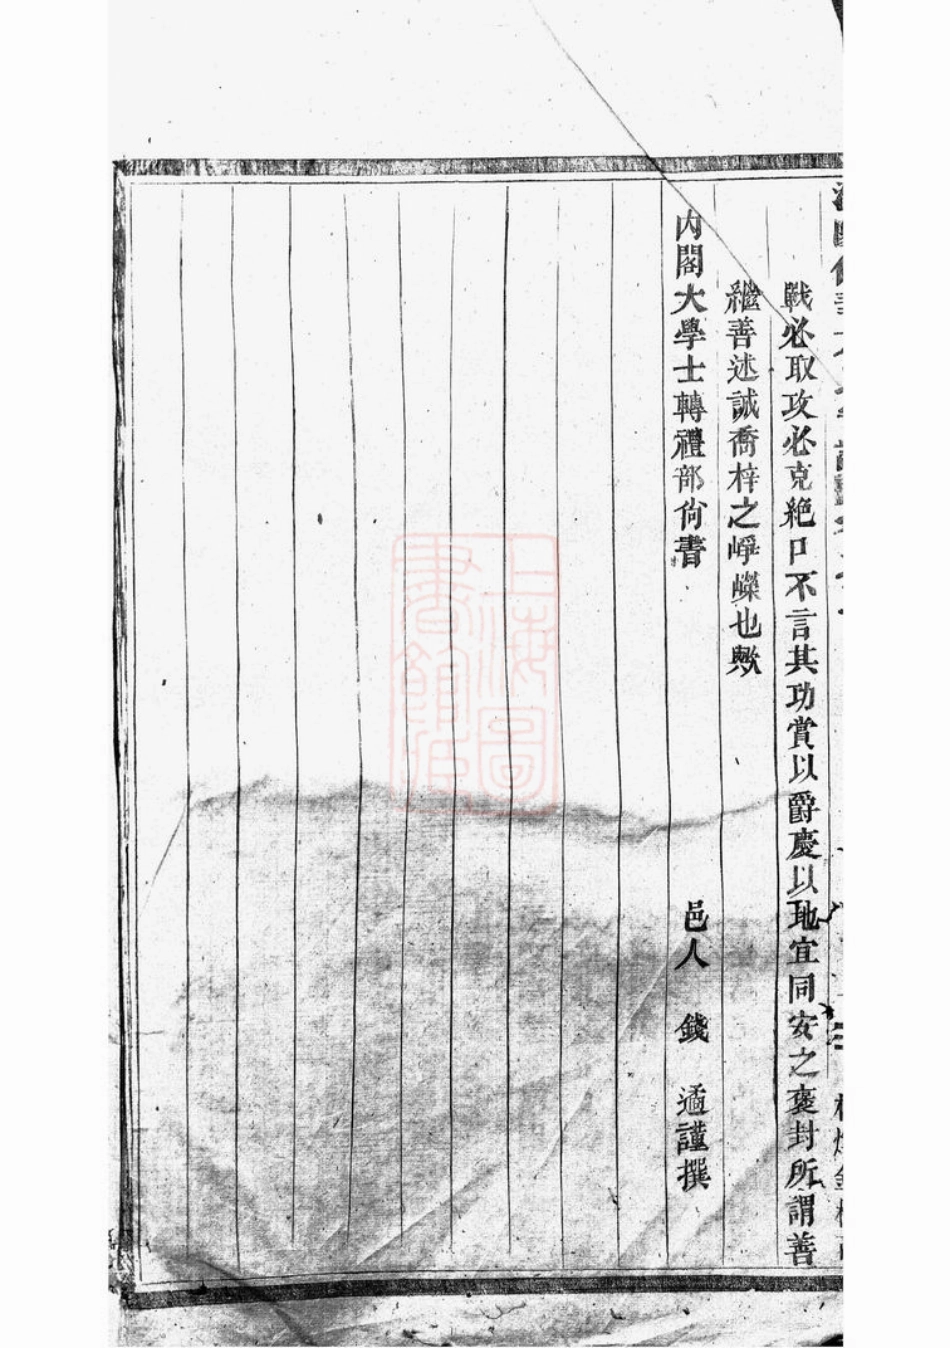 戰必取攻必克絶口不言其功賞以爵慶以地宜同安之褒封所謂善
繼善述誠喬梓之崢嶸也歟
内閣大學士轉禮部尙書 邑人 錢 遹謹撰
上海圖書館藏